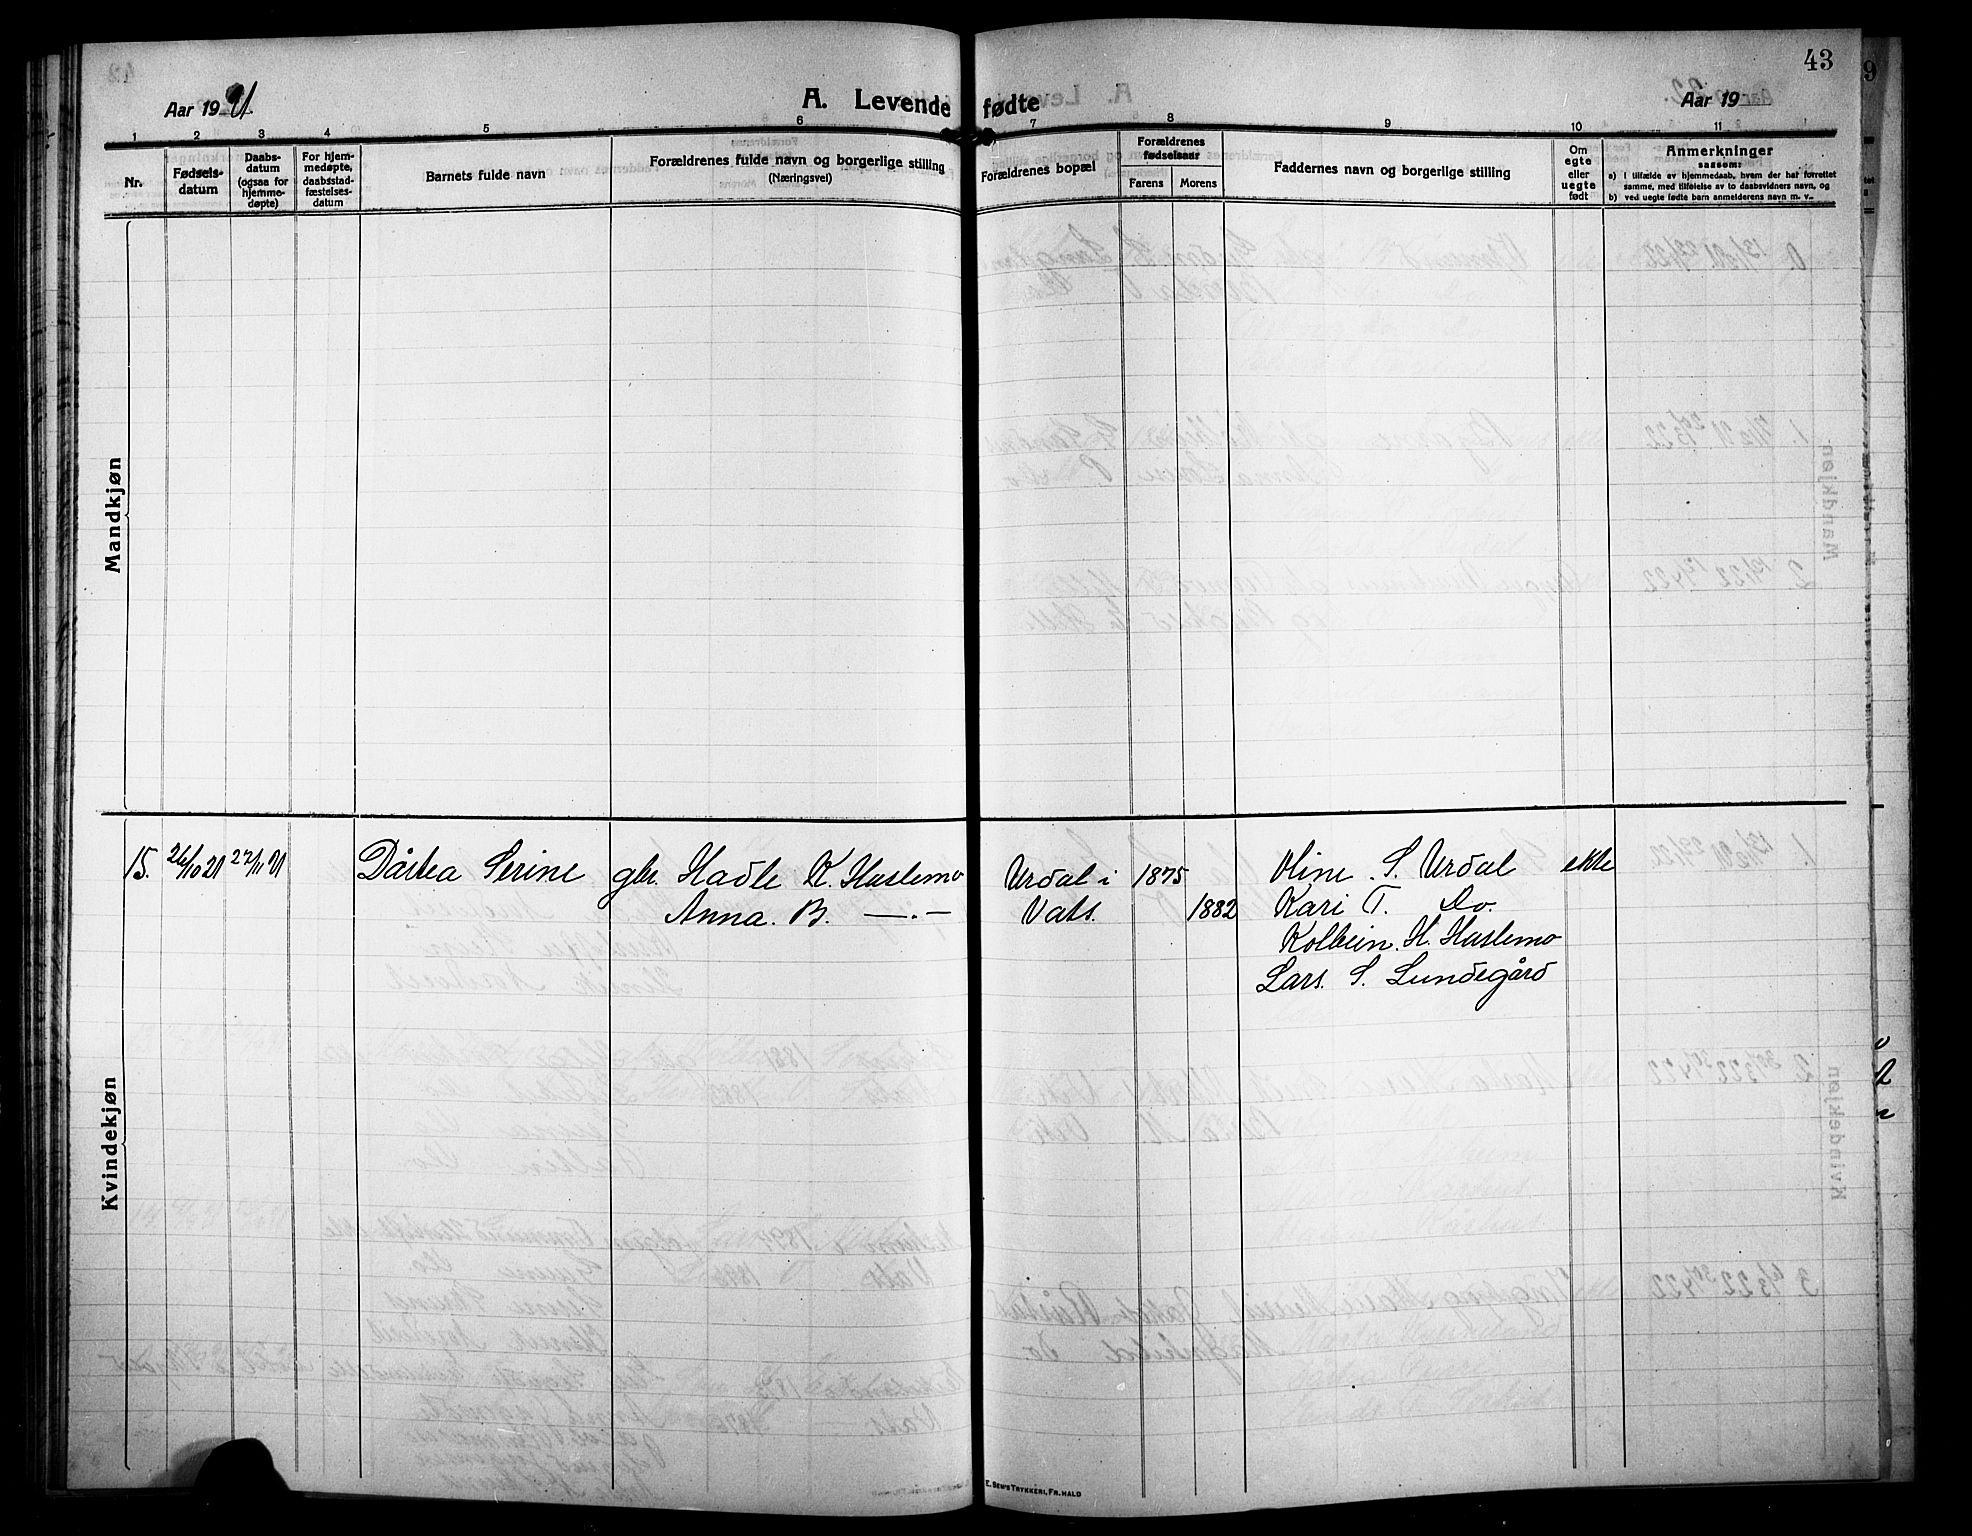 43
Aar 1921
A. Levende fødte
Aar 19
1 2 3 4 5 6 7 8 9 10 11
Nr.
Fødsels-
datum
Daabs-
datum
(ogsaa for
hjemme-
døpte)
For hjem-
medøpte,
daabsstad-
fæstelses-
datum
Barnets fulde navn
Forældrenes fulde navn og borgerlige stilling
(Næringsvei)
Forældrenes bopæl
Forældrenes
fødselsaar
Farens Morens
Faddernes navn og borgerlige stilling
Om
egte
eller
uegte
født
Anmerkninger
saasom:
a) i tilfælde av hjemmedaab, hvem der har forrettet
samme, med tilføielse av to daabsvidners navn, og
b) ved uegte fødte barn anmelderens navn m. v.
Mandkjøn
Kvindekjøn
15. 26/10 21 27/11 21 Dårtea Serine gbr. Hadle K. Haslemo Urdal i 1875 Oline S. Urdal ekte
Anna. B. —·— Vats. 1882 Kari T. Do.
Kolbein. H. Haslemo
Lars. S. Lundegård
E. SEM'S TRYKKERI, FR.HALD